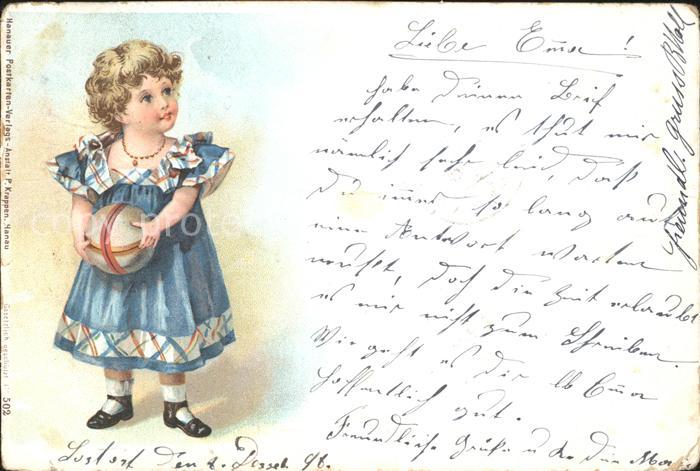 Hanauer Postkarten-Verlags-Anstalt P. Krappen, Hanau
Gesetzlich geschützt
502
Liebe Emma!
habe deinen Brief
erhalten, es thut mir
nämlich sehr leid, daß
du immer so lang auf
eine Antwort warten
mußt, doch die Zeit erlaubt
es mir nicht zum Schreiben.
Wie geht es dir lb Emma
hoffentlich gut.
Freundliche Grüße u
den Dezeb 98.
Freundl. Gruss